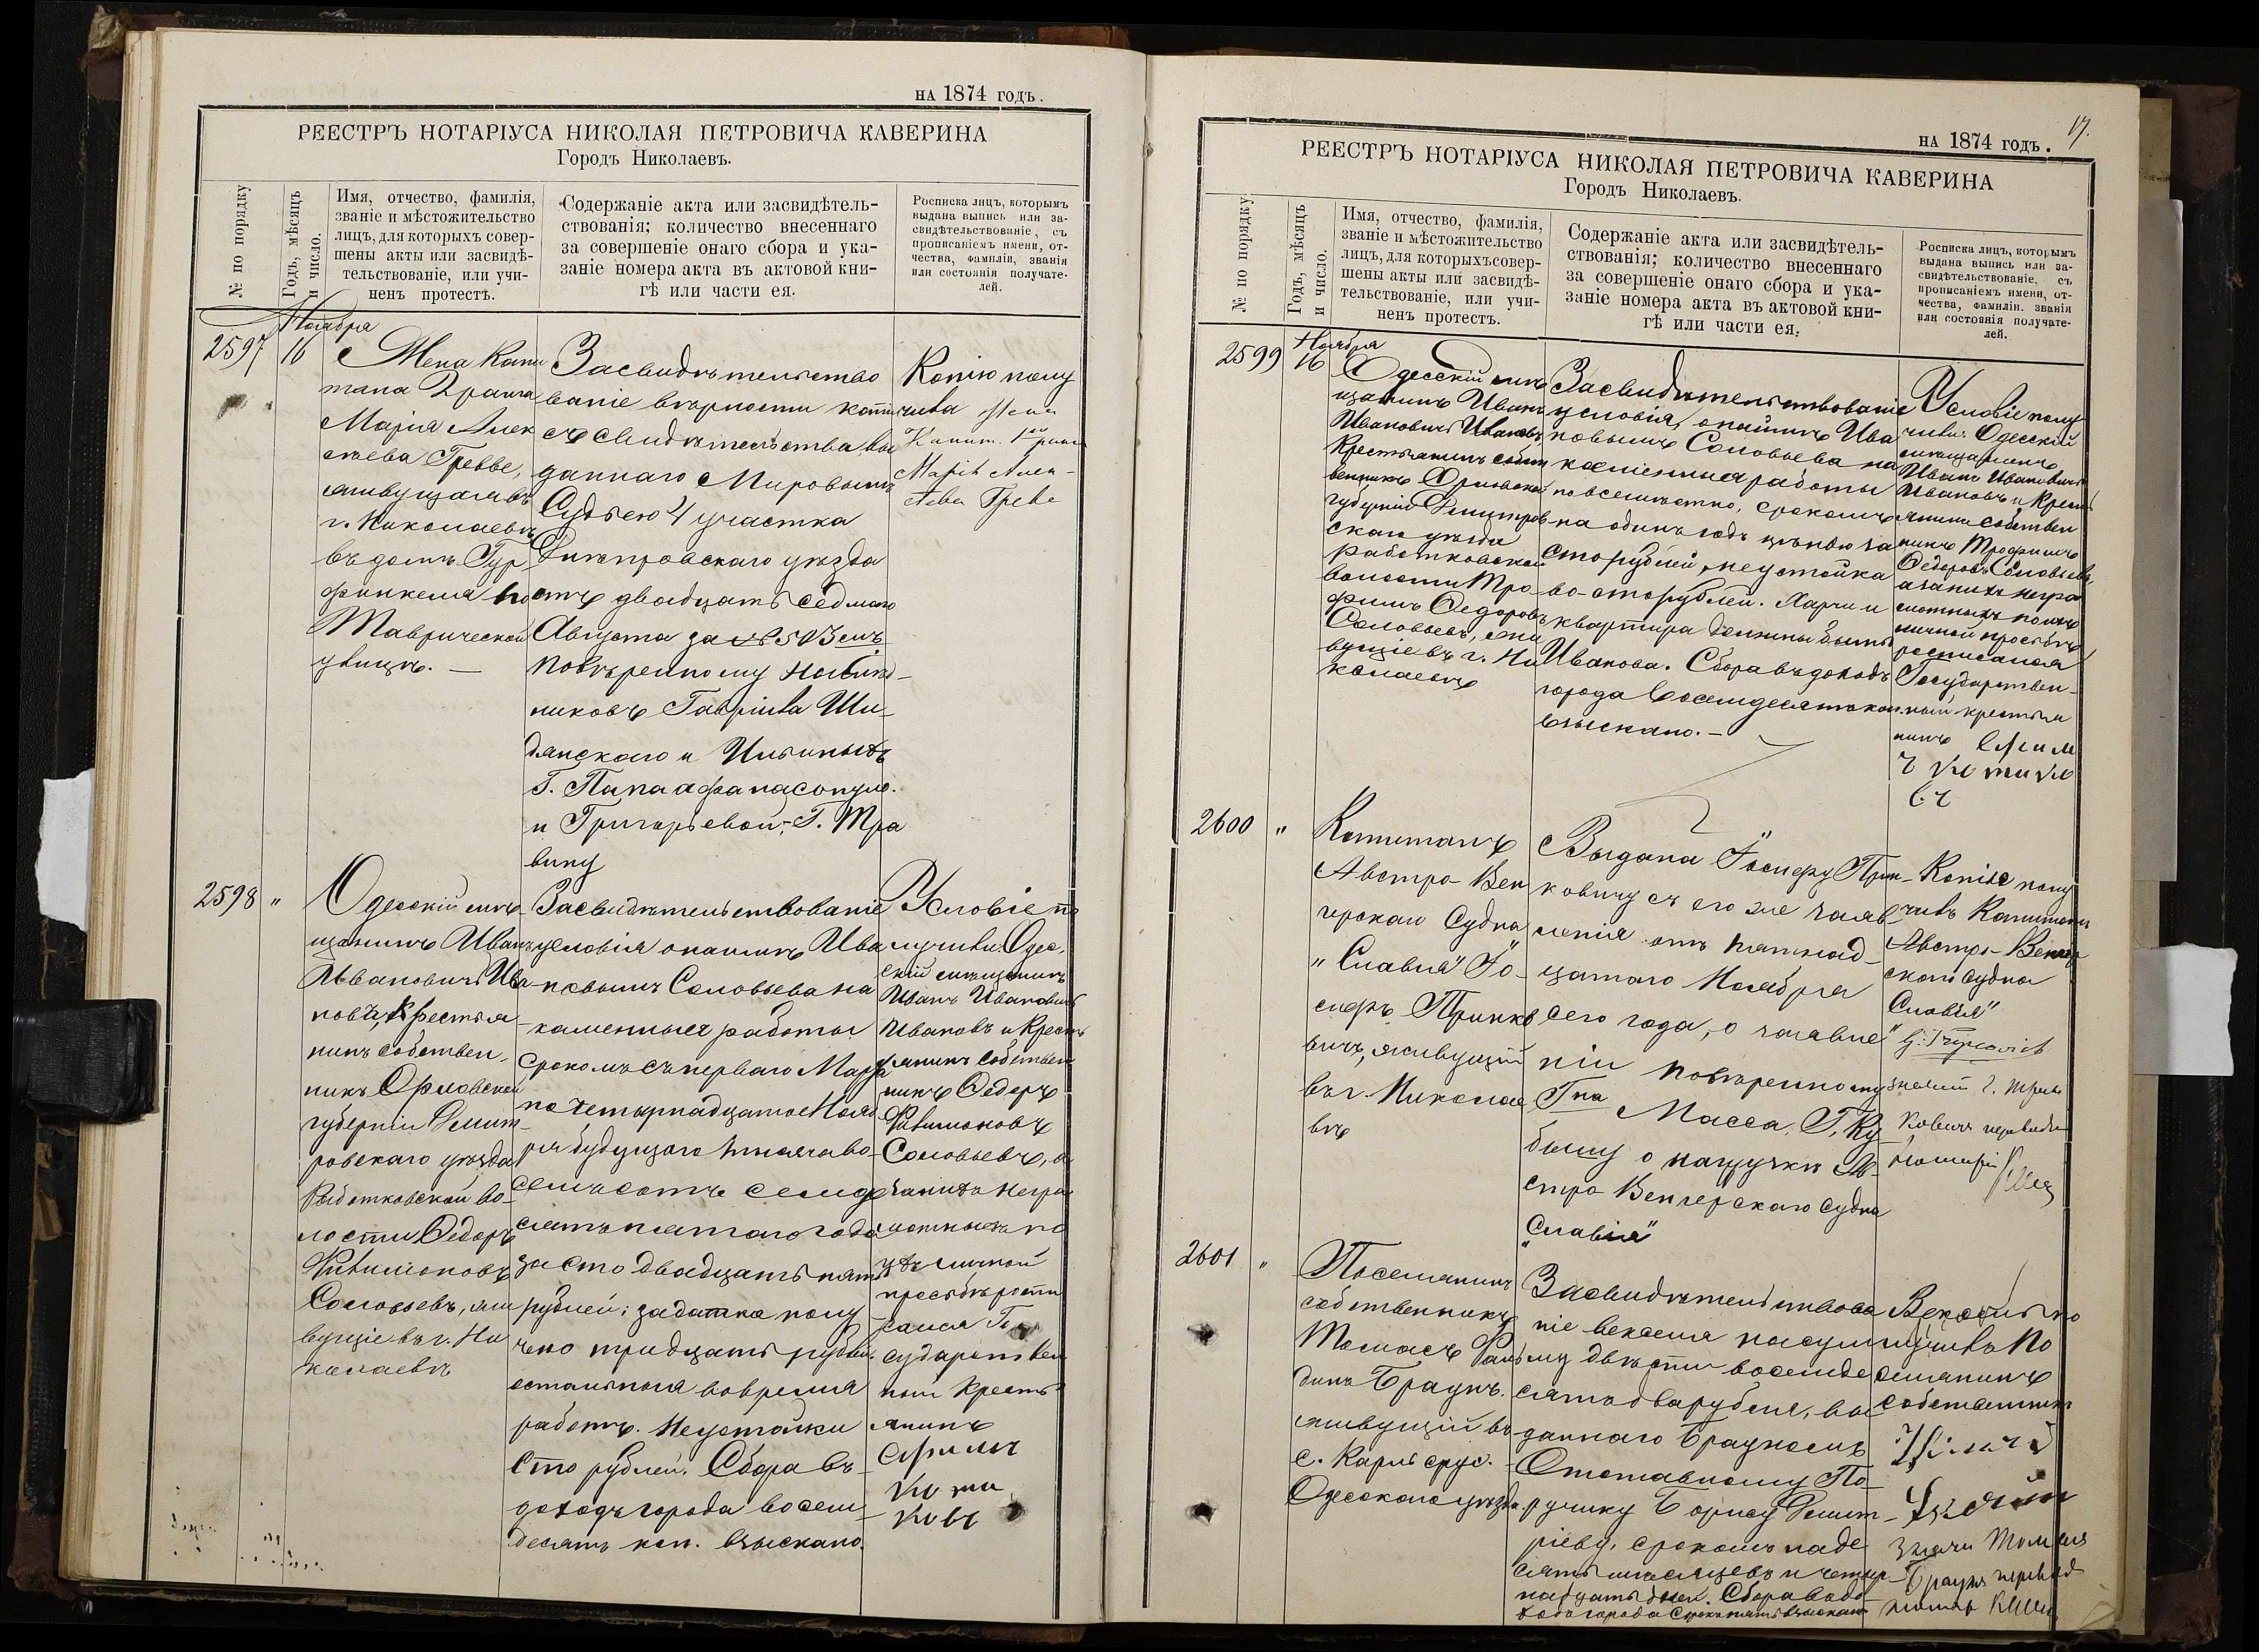 на 1874 годъ.
РЕЕСТРЪ НОТАРІУСА НИКОЛАЯ ПЕТРОВИЧА КАВЕРИНА
Городъ Николаевъ.
№ по порядку
Годъ, мѣсяцъ
и число.
Имя, отчество, фамилія,
званіе и мѣстожительство
лицъ, для которыхъ совер-
шены акты или засвидѣ-
тельствованіе, или учи-
ненъ протестъ.
Содержаніе акта или засвидѣтель-
ствованія; количество внесеннаго
за совершеніе онаго сбора и ука-
заніе номера акта въ актовой кни-
гѣ или части ея.
Росписка лицъ, которымъ
выдана выпись или за-
свидѣтельствованіе, съ
прописаніемъ имени, от-
чества, фамиліи, званія
или состоянія получате-
лей.
Ноября
2597
16
Жена Капи
тана 2 ранга
Марія Алек
сѣева Греве,
живущая въ
г. Николаевѣ
въ домѣ Гур
финкеля по
Таврической
улицѣ. —
Засвидѣтельство
ваніе вѣрности копіи
съ свидѣтельства, вы
даннаго Мировымъ
Судьею 4 участка
Днѣпровскаго уѣзда
отъ двадцать седмаго
Августа за № 503
повѣренному
Гавріила Ши-
данскаго и
Г. Папаафанасопуло.
и Григорьевой, Г. Тра
вину
Копію полу
чила Жена
Капит. 1го ранга
Марія Алек-
сѣева Греве
2598
"
Одесскій мѣ-
щанинъ Иванъ
Ивановичъ Ива-
новъ, Крестья
нинъ собствен-
никъ Орловской
губерніи Дмит-
ровскаго уѣзда
Работковской во-
лости Федоръ
Филимоновъ
Соловьевъ, жи
вущіе въ г. Ни
колаевѣ
Засвидѣтельствованіе
условія о наймѣ Ива
новымъ Соловьева на
каменныя работы
срокомъ съ перваго Марта
по четырнадцатое Нояб
ря будущаго тысяча во-
семьсотъ семьде
сятъ пятаго года
за сто двадцать пять
рублей; задатка полу
чено тридцать рублей.
остальныя во время
работъ. Неустойки
сто рублей. Сбора въ
доходъ города восемь
десятъ коп. взыскано.
Условіе по
лучили: Одес-
скій мѣщанинъ
Иванъ Ивановичъ
Ивановъ и Кресть
янинъ собствен
никъ Федоръ
Филимоновъ
Соловьевъ, а
за нихъ негра
мотныхъ по
ихъ личной
просьбѣ роспи
сался Го
сударствен
ный Кресть
янинъ
17.
на 1874 годъ.
РЕЕСТРЪ НОТАРІУСА НИКОЛАЯ ПЕТРОВИЧА КАВЕРИНА
Городъ Николаевъ.
№ по порядку
Годъ, мѣсяцъ
и число.
Имя, отчество, фамилія,
званіе и мѣстожительство
лицъ, для которыхъ совер-
шены акты или засвидѣ-
тельствованіе, или учи-
ненъ протестъ.
Содержаніе акта или засвидѣтель-
ствованія; количество внесеннаго
за совершеніе онаго сбора и ука-
заніе номера акта въ актовой кни-
гѣ или части ея.
Росписка лицъ, которымъ
выдана выпись или за-
свидѣтельствованіе, съ
прописаніемъ имени, от-
чества, фамиліи, званія
или состоянія получате-
лей.
Ноября
2599
16
Одесскій мѣ
щанинъ Иванъ
Ивановичъ Ивановъ,
Крестьянинъ собст
венникъ Орловской
губерніи Дмитров-
скаго уѣзда
Работковской
волости Тро-
фимъ Федоровъ
Соловьевъ, жи
вущіе въ г. Ни
колаевѣ
Засвидѣтельствованіе
условія, о наймѣ Ива
новымъ Соловьева на
каменныя работы
повсемѣстно, срокомъ
на одинъ годъ цѣною за
сто рублей, неустойка
во сто рублей. Харчи и
квартира должны быть
Иванова. Сбора въ доходъ
города восемдесятъ коп.
взыскано. —
Условіе полу
чили: Одесскій
мѣщанинъ
Иванъ Ивановичъ
Ивановъ и Кресть
янинъ собствен
никъ Трофимъ
Федоровъ Соловьевъ,
а за нихъ негра
мотныхъ по ихъ
личной просьбѣ
росписался
Государствен-
ный крестья
нинъ
2600
"
Капитанъ
Австро-Вен
герскаго Судна
„Славія" Іо-
сифъ Тринко
вичъ, живущій
въ г. Николае
вѣ
Выдана Іосифу Трин-
ковичу съ его же заяв
ленія отъ пятнад-
цатаго Ноября
сего года, о заявле
ніи повѣренному
Гна Масса, Г. Ку
бышу о нагрузкѣ Ав-
стро Венгерскаго Судна
„Славія"
Копію полу
чилъ Капитанъ
Австро-Венгер
скаго судна
„Славія"
2601
"
Поселянинъ
собственникъ
Томасъ
Браунъ.
живущій въ
с. Карлсрус.
Одесскаго уѣзда.
Засвидѣтельствова
ніе векселя на сум
му двѣсти восемде
сятъ два рубля, вы
даннаго Брауномъ
Отставному По-
ручику Борису Дмит-
ріеву, срокомъ на де
сять мѣсяцевъ и четыр-
надцать дней. Сбора въ до
ходъ города сорокъ пять взыскано
Вексель по
лучилъ По
селянинъ
собственникъ